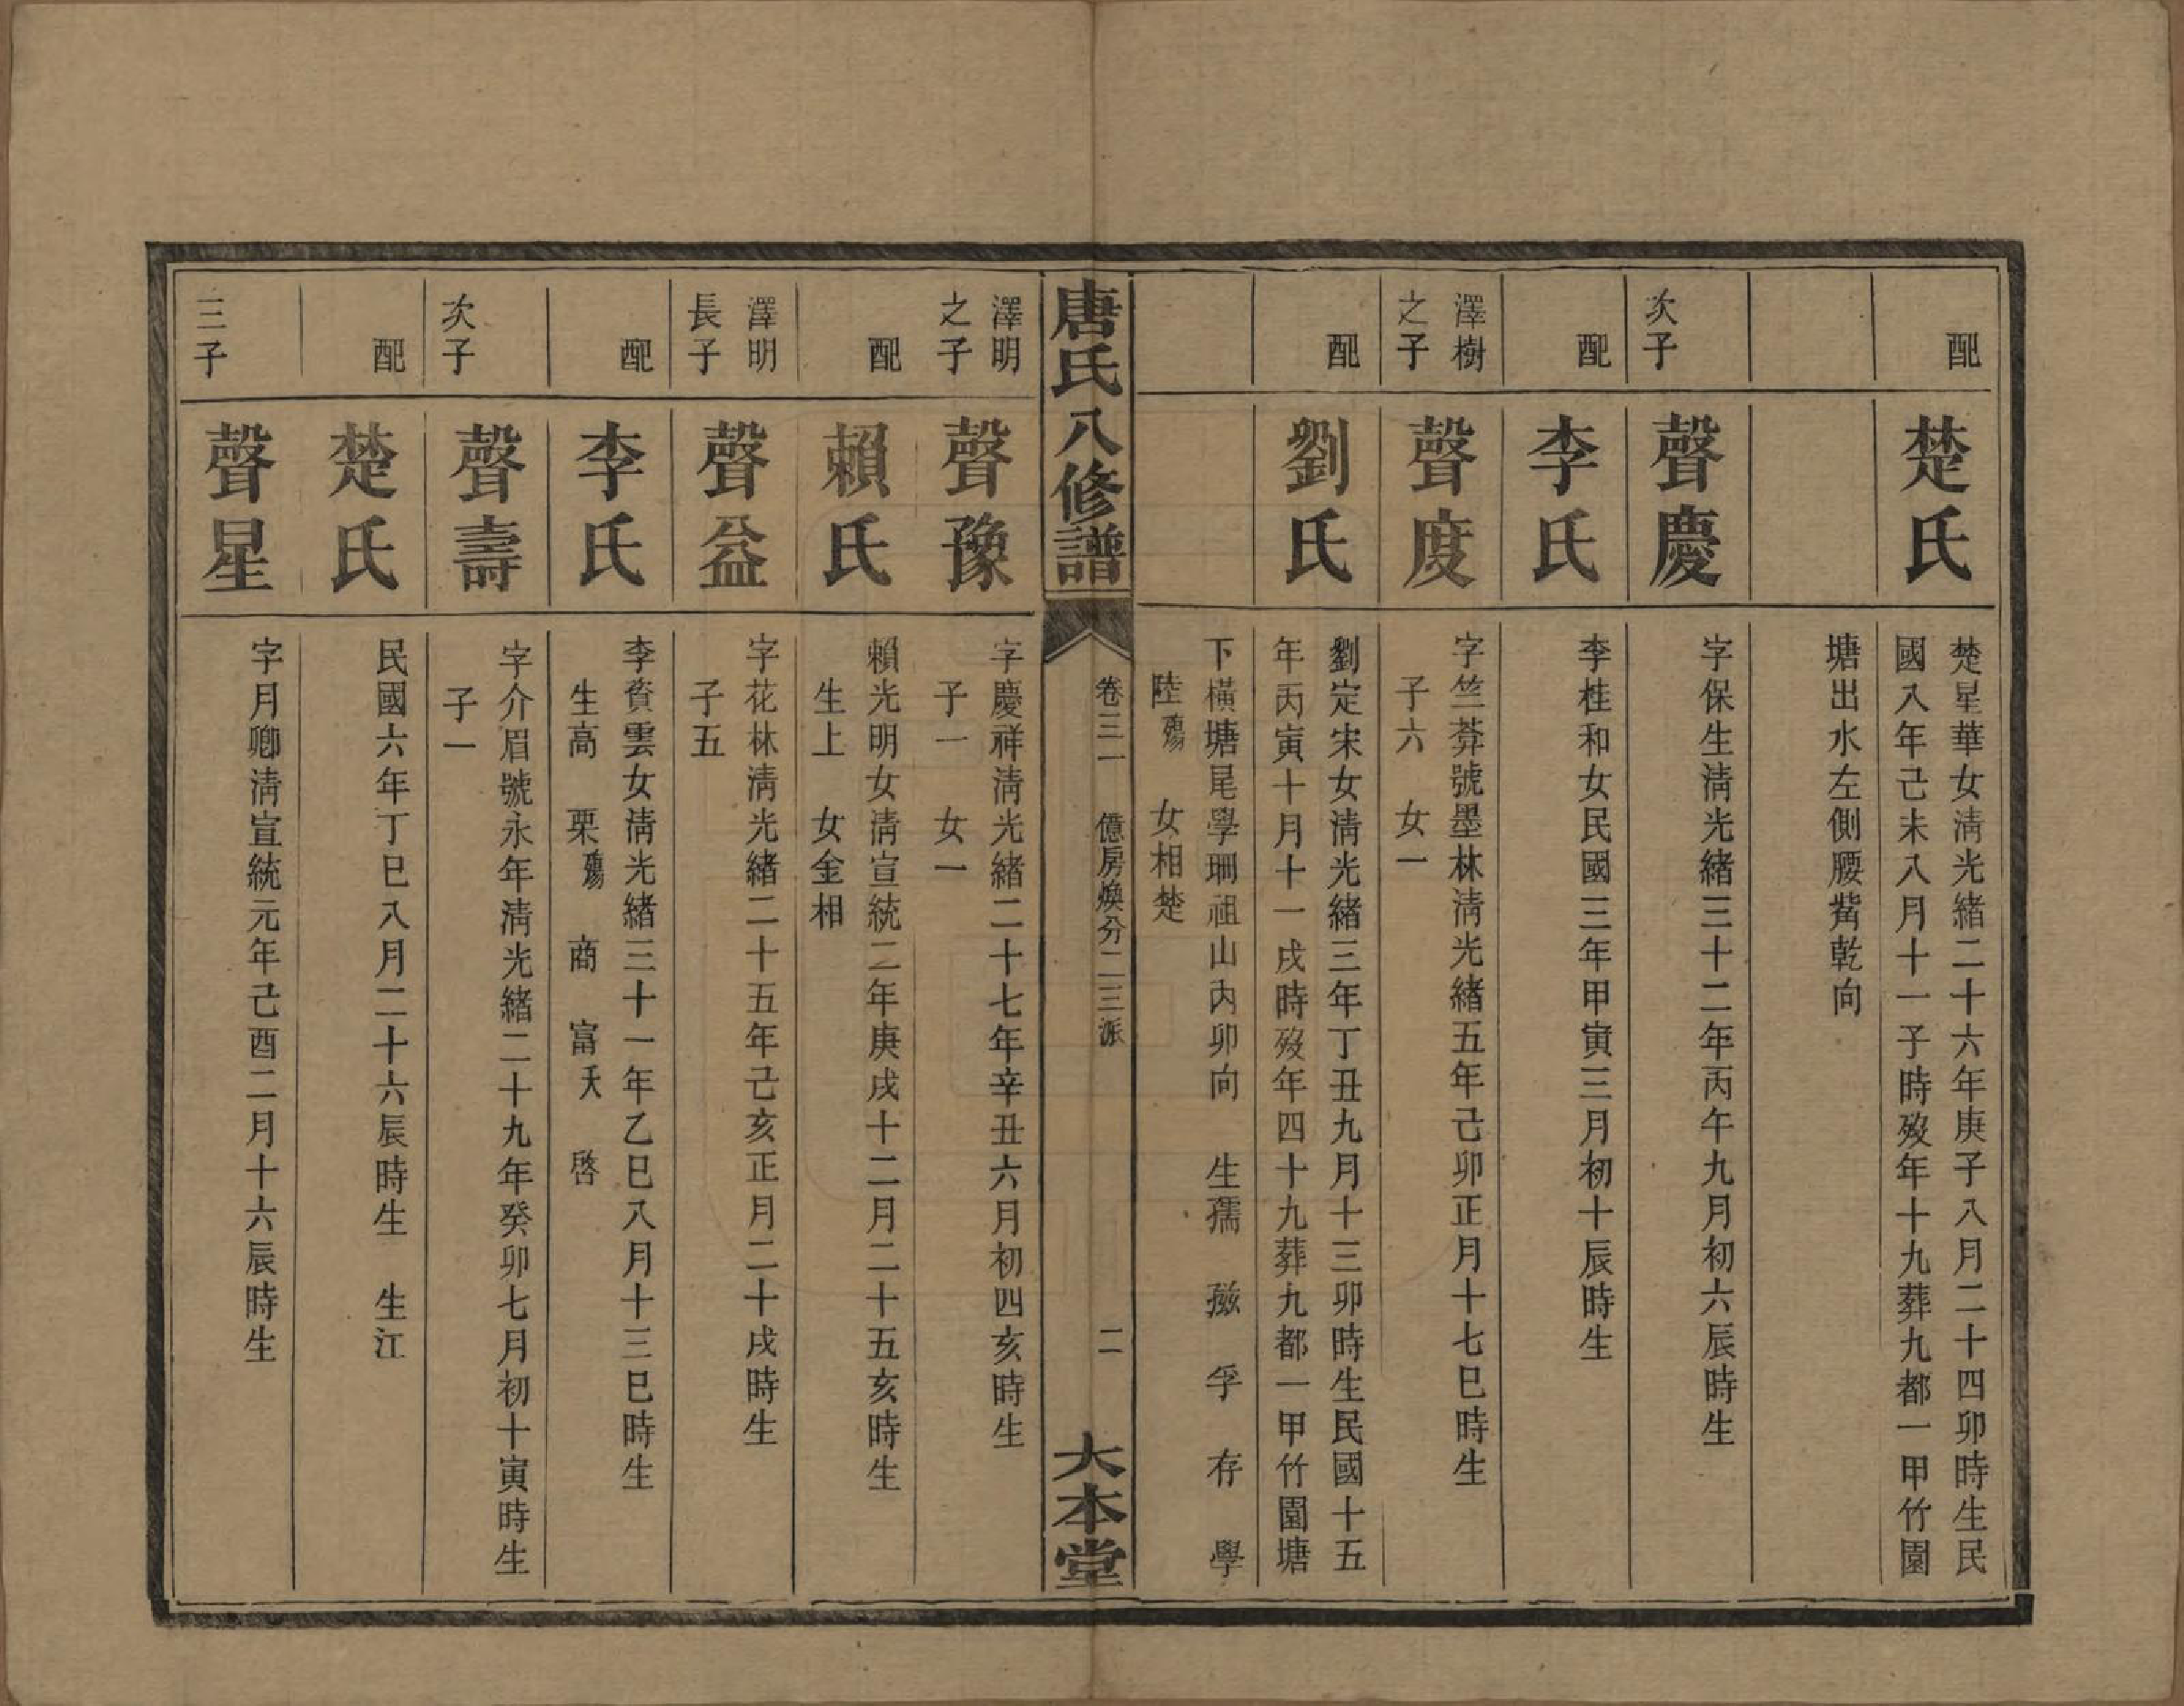 配
楚氏
楚星華女清光緒二十六年庚子八月二十四卯時生民
國八年己未八月十一子時歿年十九葬九都一甲竹園
塘出水左側腰觜乾向
次子
聲慶
字保生清光緒三十二年丙午九月初六辰時生
配
李氏
李桂和女民國三年甲寅三月初十辰時生
澤樹
之子
聲度
字竺莽號墨林清光緒五年己卯正月十七巳時生
子六 女一
配
劉氏
劉定宋女清光緒三年丁丑九月十三卯時生民國十五
年丙寅十月十一戌時歿年四十九葬九都一甲竹園塘
下橫塘尾學珊祖山內卯向 生孺 孳 孚 存 學
陸殤 女相楚
唐氏八修譜
卷三一 億房煥分二三派
二
大本堂
澤明
之子
聲豫
字慶祥清光緒二十七年辛丑六月初四亥時生
子一 女一
配
賴氏
賴光明女清宣統二年庚戌十二月二十五亥時生
生上 女金相
澤明
長子
聲益
字花林清光緒二十五年己亥正月二十戌時生
子五
配
李氏
李資雲女清光緒三十一年乙巳八月十三巳時生
生高 栗殤 商 富夭 啓
次子
聲壽
字介眉號永年清光緒二十九年癸卯七月初十寅時生
子一
配
楚氏
民國六年丁巳八月二十六辰時生 生江
三子
聲星
字月卿清宣統元年己酉二月十六辰時生